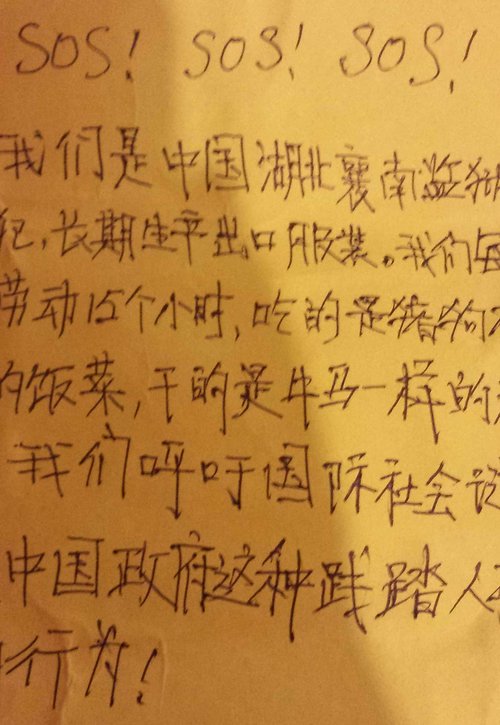 SOS! SOS! SOS!
我们是中国湖北襄南监狱
犯,长期生产出口服装。我们每
劳动15个小时,吃的是猪狗不
的饭菜,干的是牛马一样的
我们呼吁国际社会谴
中国政府这种践踏人
行为!